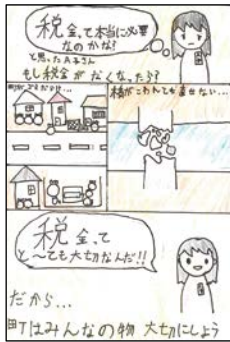 税金って本当に必要
なのかな?
と思ったA子さん
もし税金がなくなったら?
橋がこわれても直せない…
税金って
と〜ても大切なんだ!!
だから…
町はみんなの物 大切にしよう